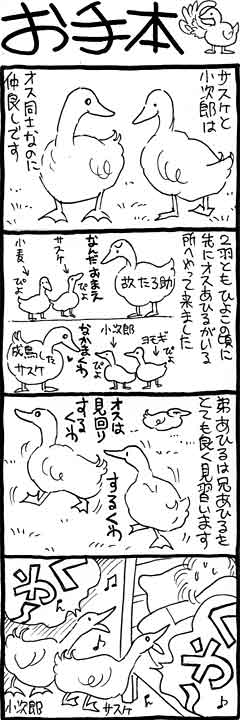 お手本
サスケと
小次郎は
オス同士なのに
仲良しです
2羽ともひよこの頃に
先にオスあひるがいる
所へやって来ました
故たろ助
なんだおまえ
サスケ
ぴよ
小麦
ぴよ
ヨモギ
ぴよ
小次郎
ぴよ
なかまくわ
成鳥した
サスケ
弟あひるは兄あひるを
とても良く見習います
オスは
見回り
するくわ
するくわ
サスケ
小次郎